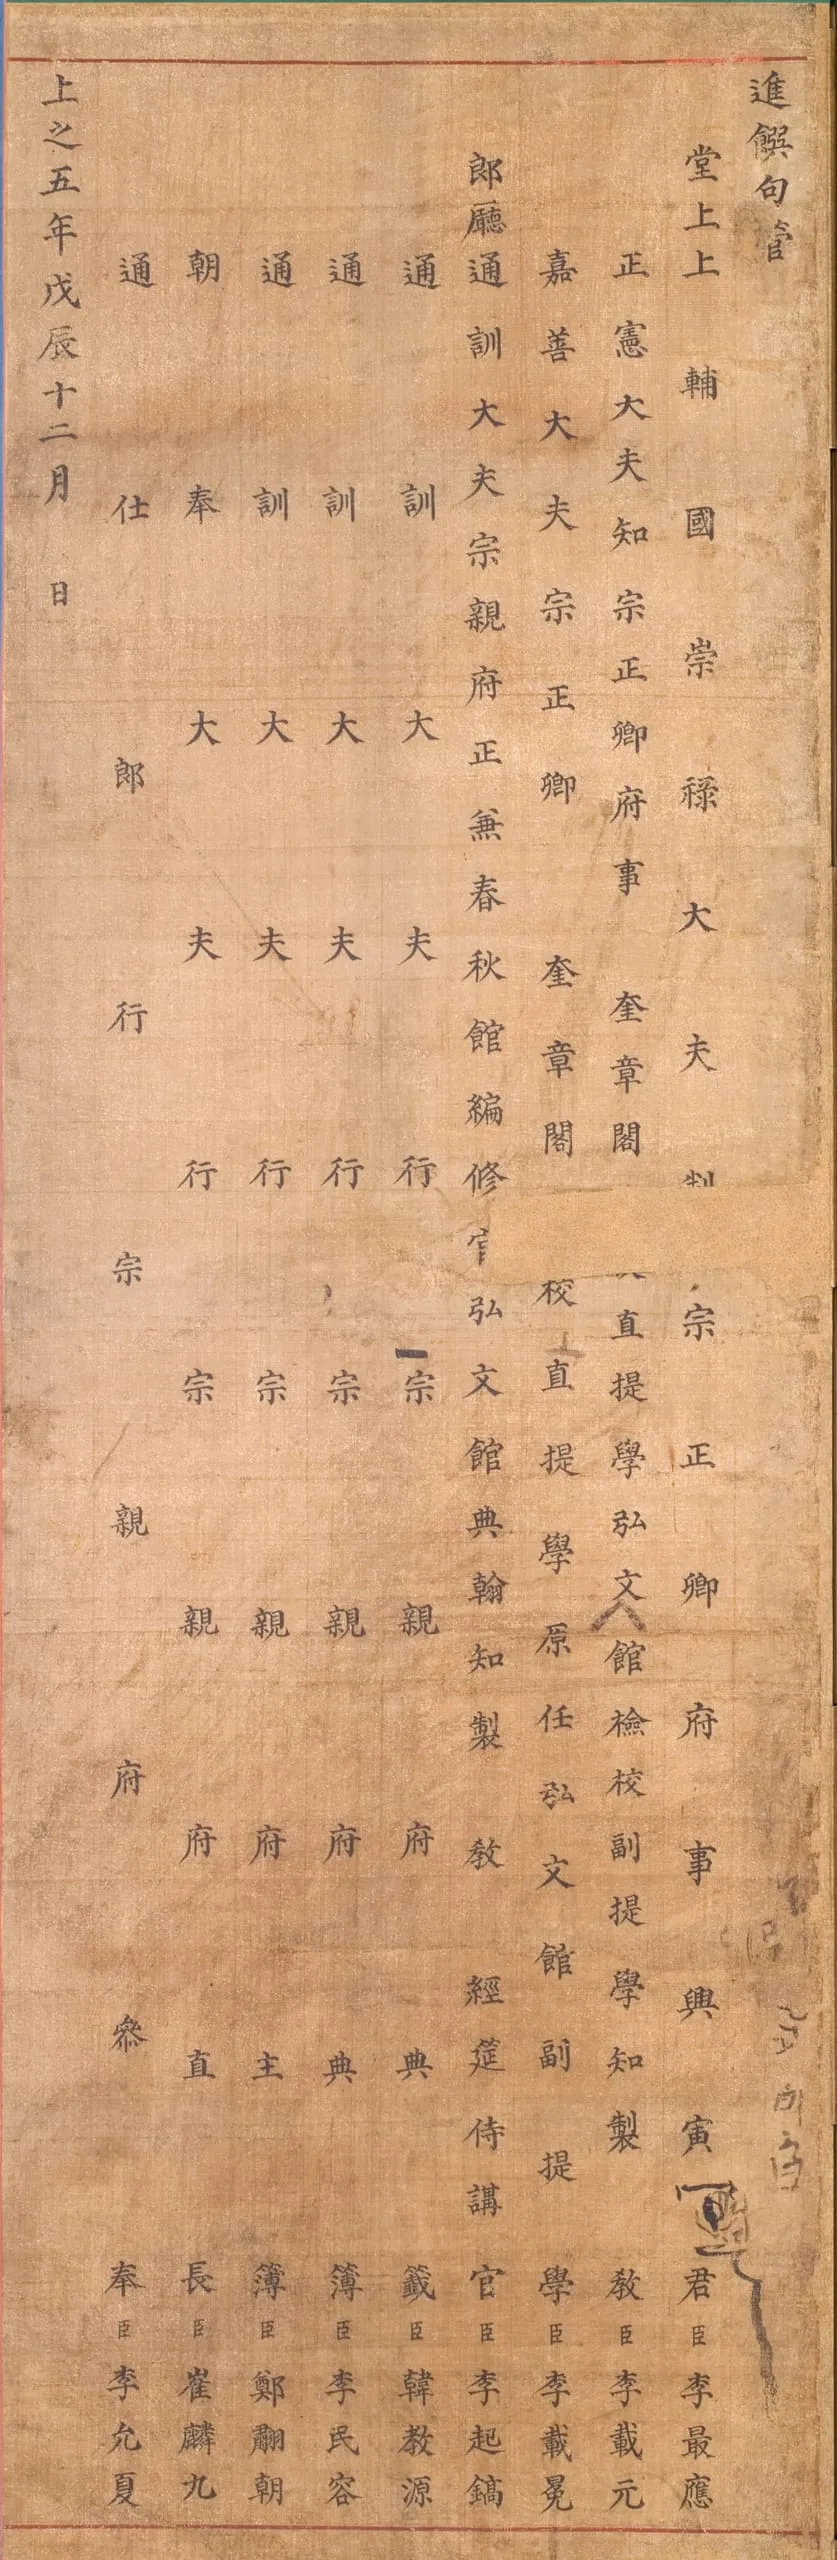 進饌句管
堂上上輔國崇祿大夫 宗正卿府事興寅君臣李最應
正憲大夫知宗正卿府事 奎章閣 直提學弘文館檢校副提學知製 敎臣李載元
嘉善大夫宗正卿 奎章閣 校直提學原任弘文館副提學臣李載冕
郎廳通訓大夫宗親府正兼春秋館編修官弘文館典翰知製 敎 經筵侍講官臣李起鎬
通訓大夫行宗親府典籤臣韓敎源
通訓大夫行宗親府典簿臣李民容
通訓大夫行宗親府主簿臣鄭翮朝
朝奉大夫行宗親府直長臣崔麟九
通仕郎行宗親府叅奉臣李允夏
上之五年戊辰十二月 日